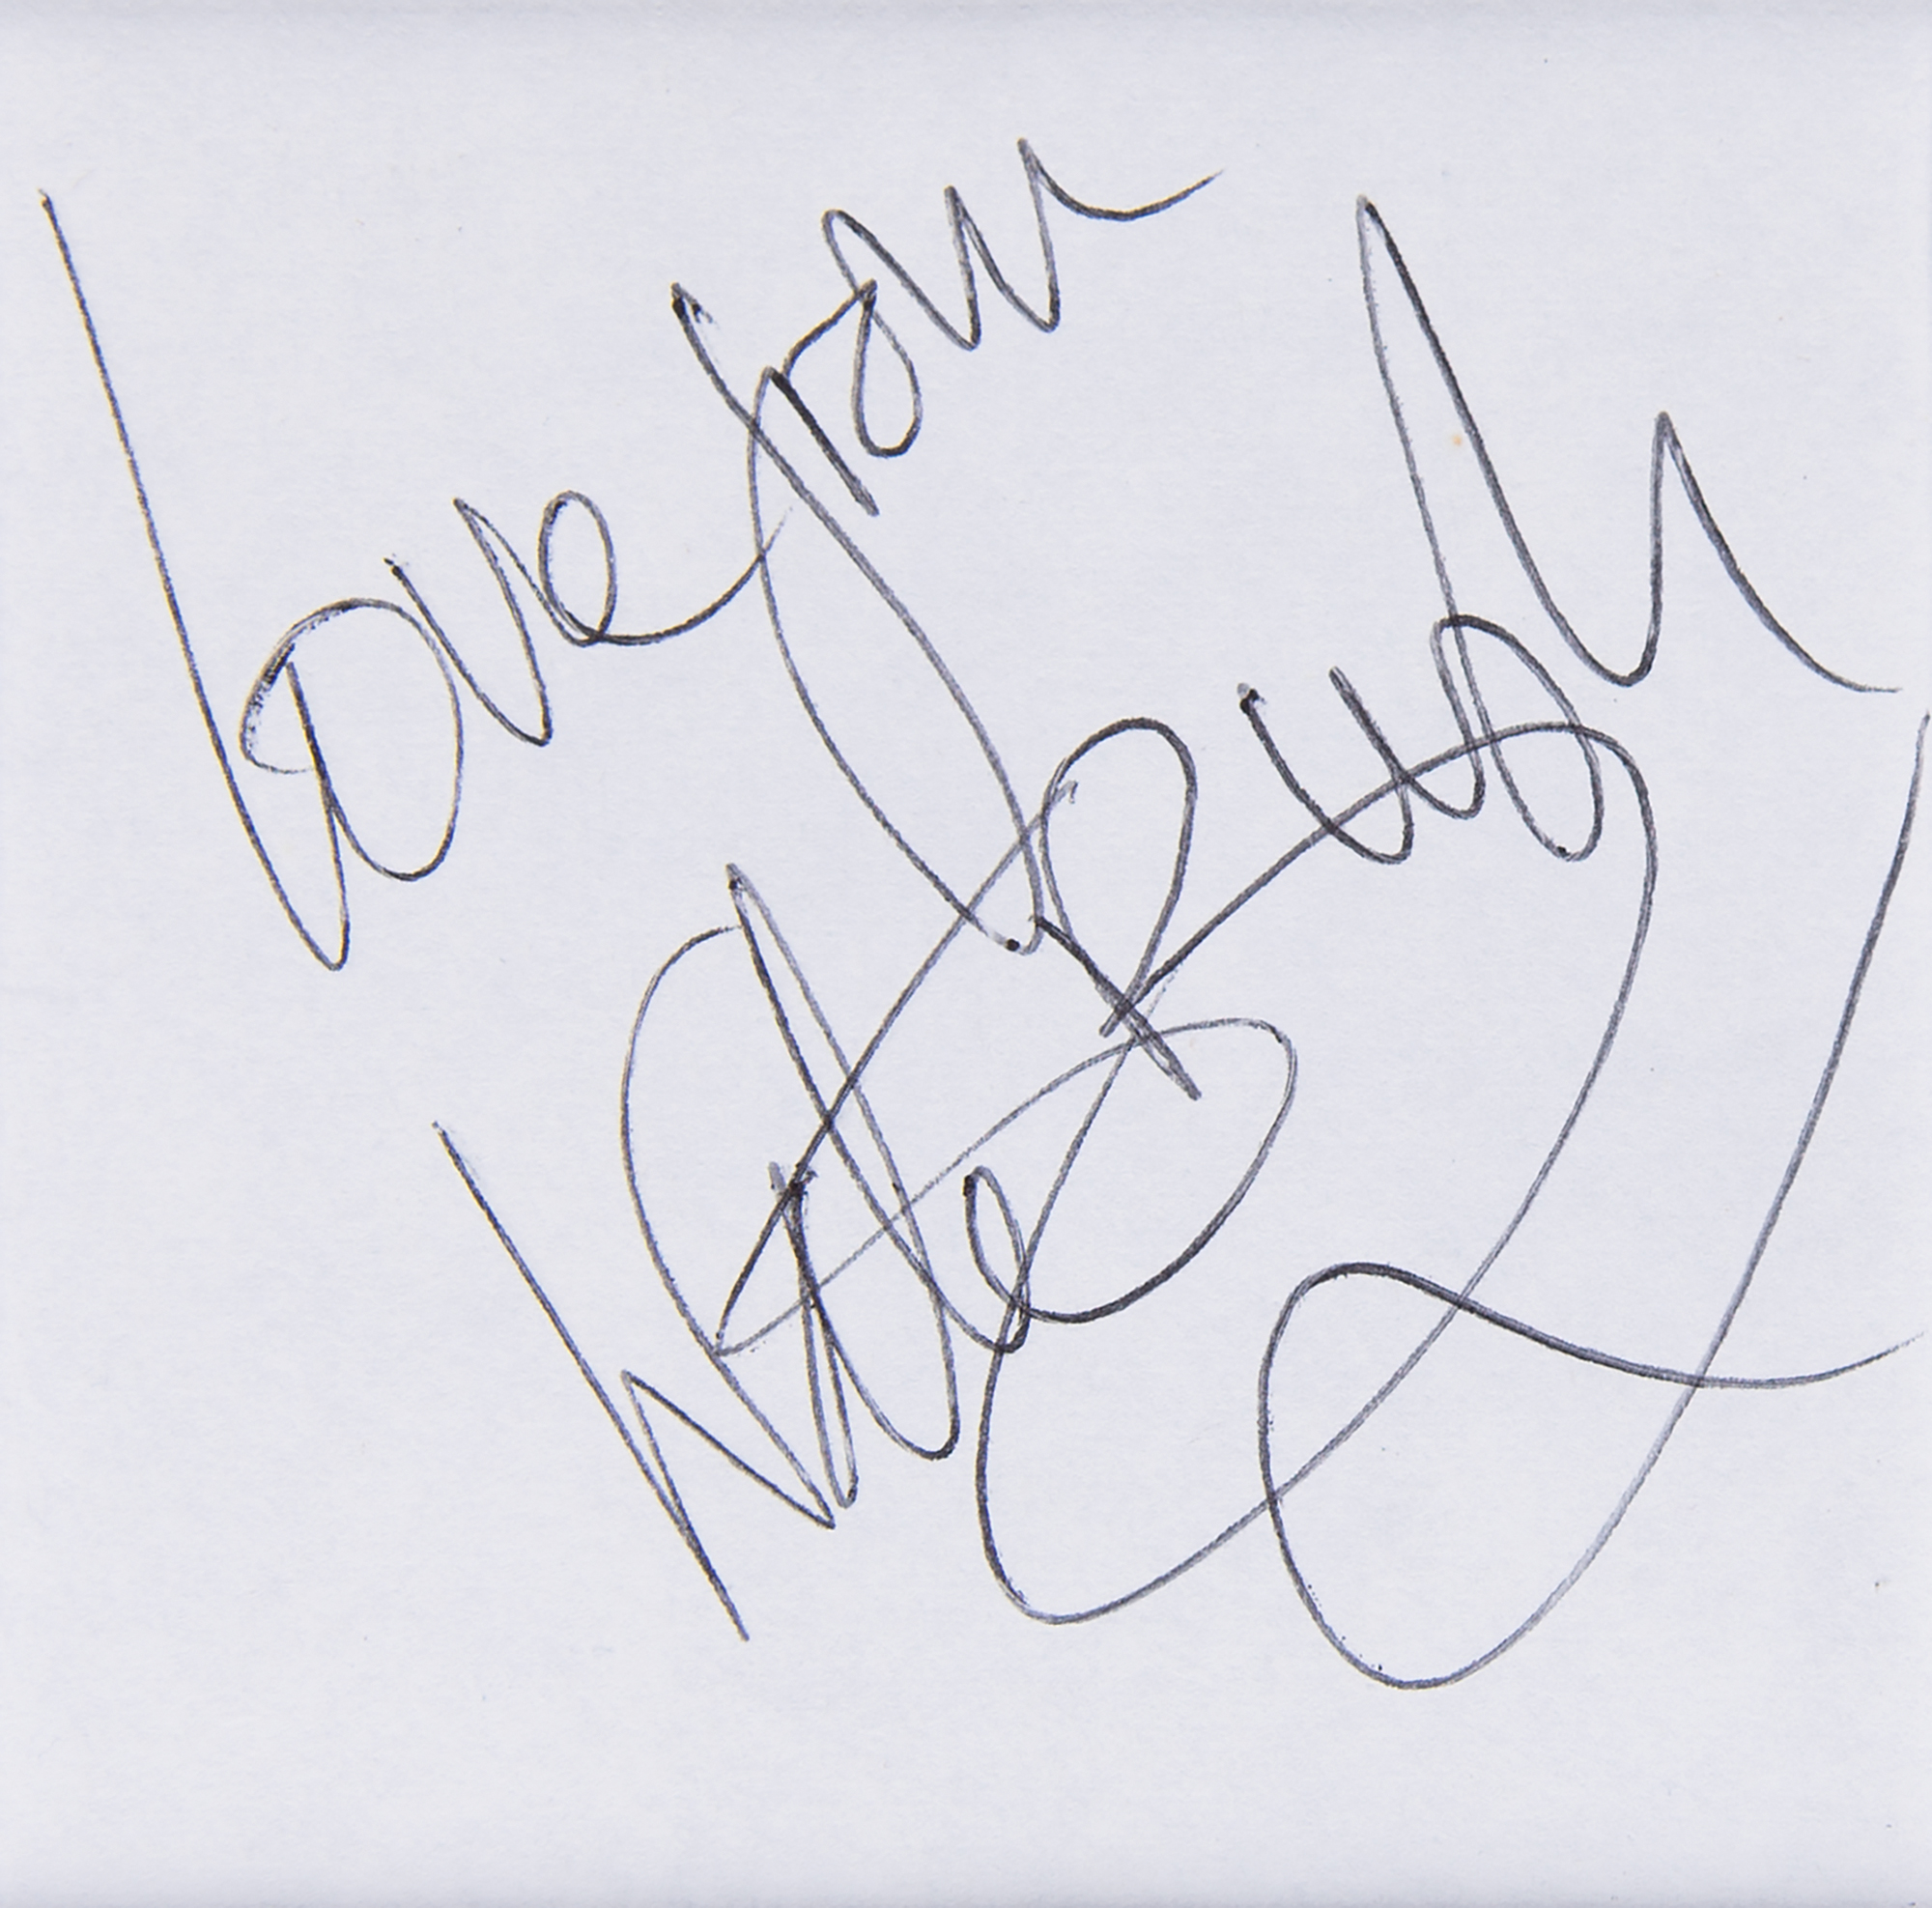 love from
Kate Bush